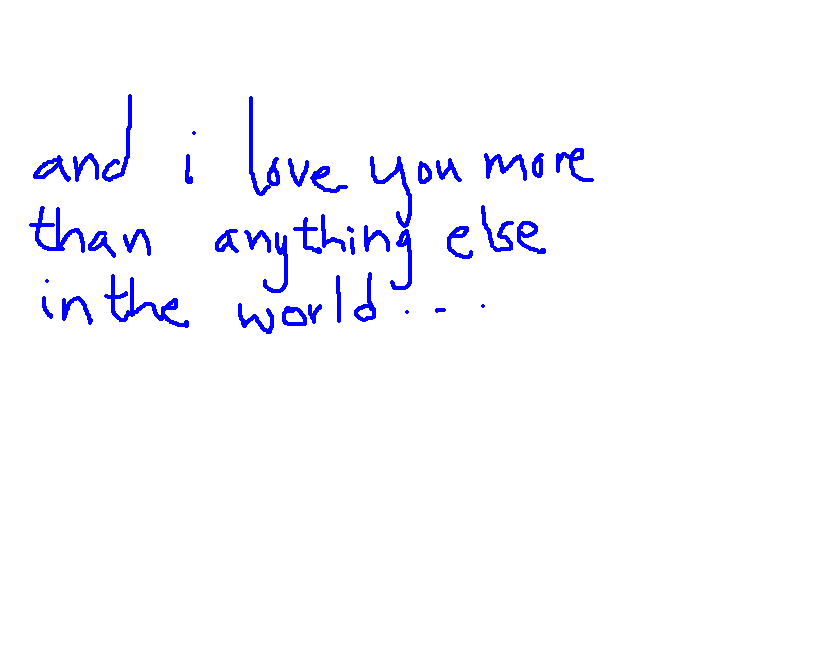 and i love you more
than anything else
in the world...